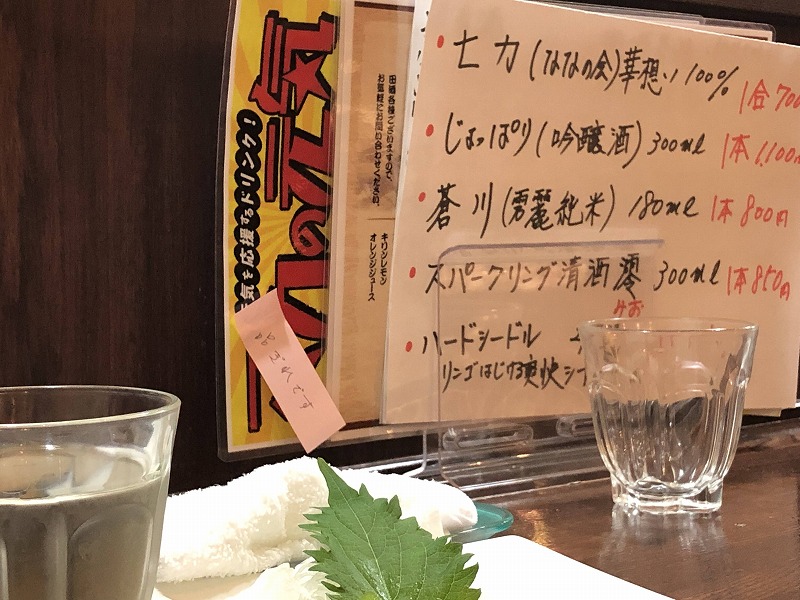 ・七力(ななの会)華想い100% 1合700
・じょっぱり(吟醸酒)300ml 1本1,100円
・蒼川(雲麗純米)180ml 1本800円
・スパークリング清酒 澪 300ml 1本850円
みお
・ハードシードル
リンゴはじける爽快シー
田酒各種ございますので、
お気軽にお問い合わせください。
キリンレモン
オレンジジュース
の元気
元気を応援するドリンク!
品ぎれです